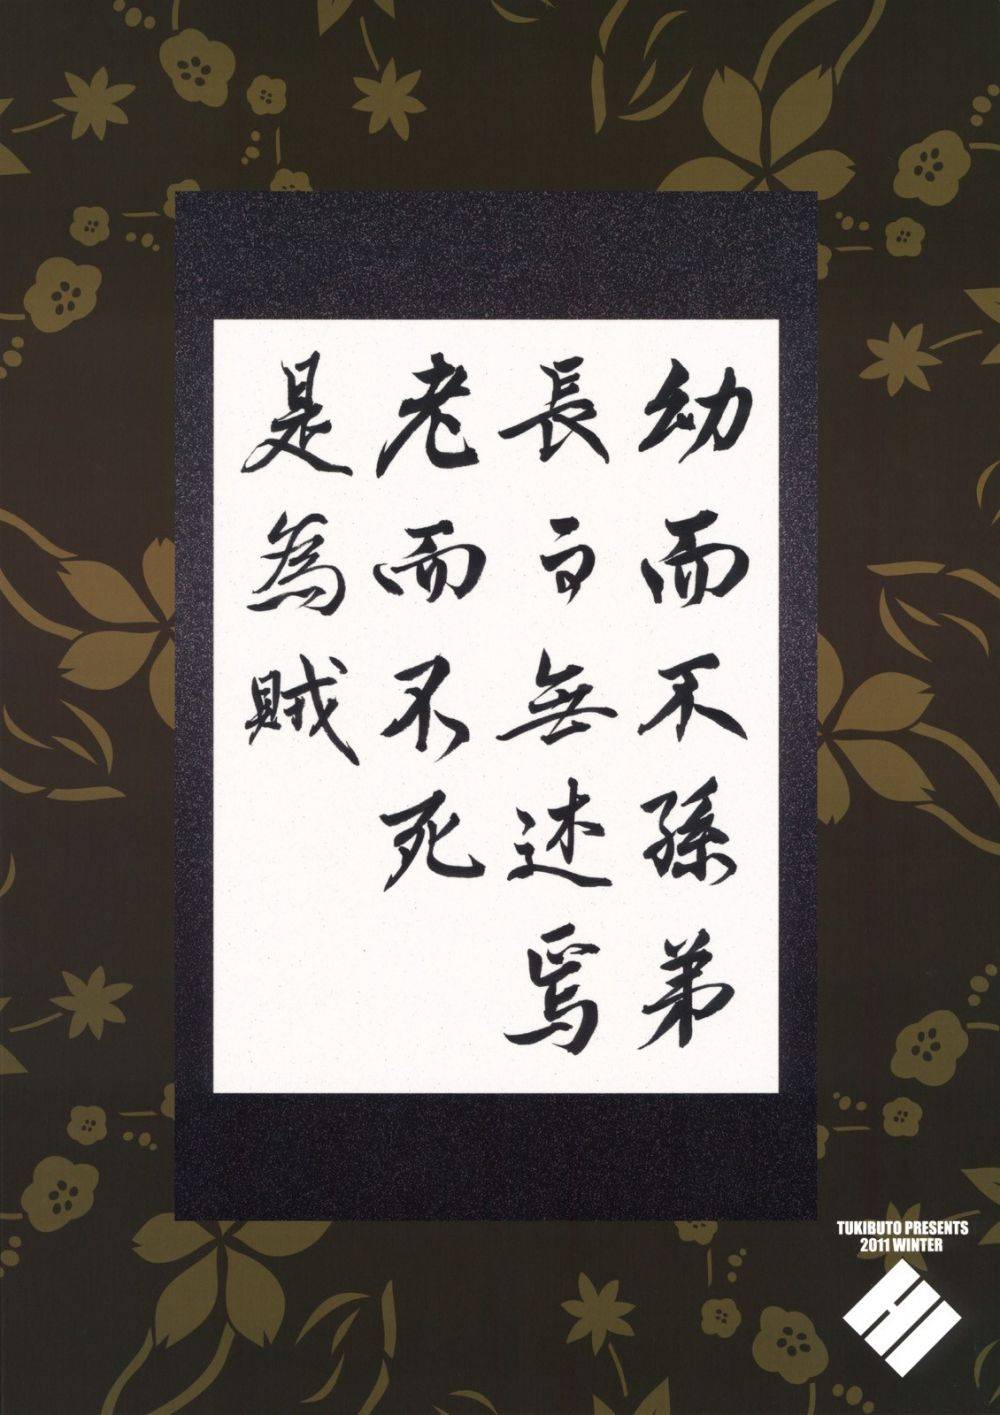 幼而不孫弟
長而無述焉
老而不死
是為賊
TUKIBUTO PRESENTS
2011 WINTER